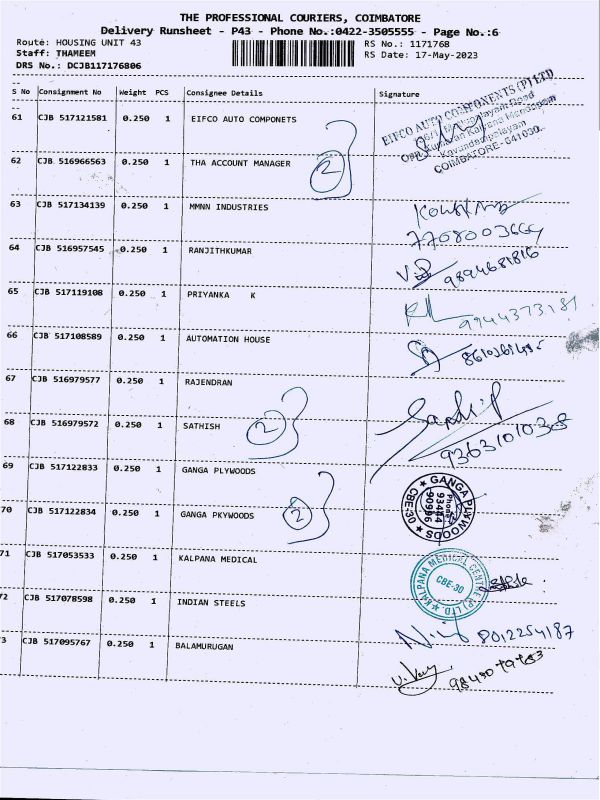 THE PROFESSIONAL COURIERS, COIMBATORE
Delivery Runsheet - P43 - Phone No.:0422-3505555 - Page No.:6
Route: HOUSING UNIT 43
RS No.: 1171768
Staff: THAMEEM
RS Date: 17-May-2023
DRS No.: DCJB117176806
S No Consignment No Weight PCS Consignee Details Signature
61 CJB 517121581 0.250 1 EIFCO AUTO COMPONETS
EIFCO AUTO COMPONENTS (P) LTD
Kavundampalayam
COIMBATORE- 641030.
62 CJB 516966563 0.250 1 THA ACCOUNT MANAGER
2
63 CJB 517134139 0.250 1 MMNN INDUSTRIES
7708003664
64 CJB 516957545 0.250 1 RANJITHKUMAR
9894681816
65 CJB 517119108 0.250 1 PRIYANKA K
9944373181
66 CJB 517108589 0.250 1 AUTOMATION HOUSE
67 CJB 516979577 0.250 1 RAJENDRAN
68 CJB 516979572 0.250 1 SATHISH
2
69 CJB 517122833 0.250 1 GANGA PLYWOODS
GANGA PLYWOODS
CBE-30
Phone
93444
90996
70 CJB 517122834 0.250 1 GANGA PKYWOODS
2
71 CJB 517053533 1 KALPANA MEDICAL
KALPANA MEDICAL CENTRE (P) LTD.
CBE-30
72 CJB 517078598 0.250 1 INDIAN STEELS
8012254187
73 CJB 517095767 0.250 1 BALAMURUGAN